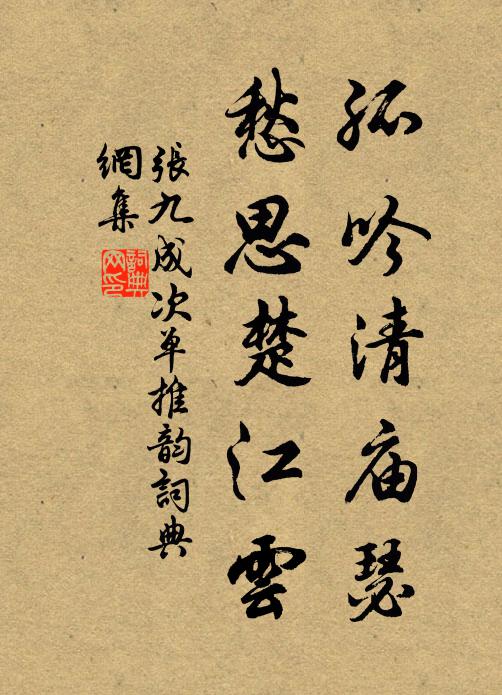 孤吟清庙瑟
愁思楚江雲
張九成次单推韵詞典
網集
詞典
网印